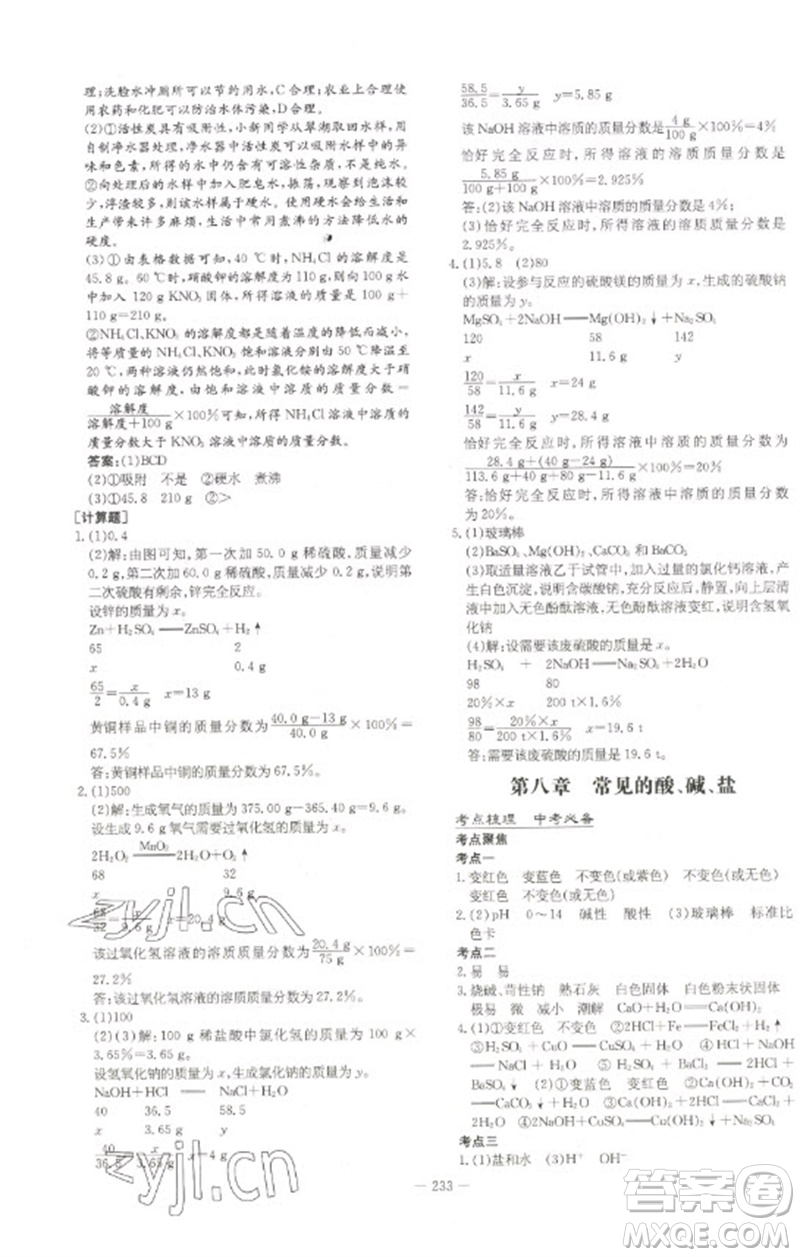 理;洗脸水冲厕所可以节约用水,C合理;农业上合理使
用农药和化肥可以防治水体污染,D合理。
(2)①活性炭具有吸附性,小新同学从翠湖取回水样,用
自制净水器处理,净水器中的活性炭可以吸附水中的异
味和色素,所得的水中仍含有可溶性杂质,不是纯水。
②向处理后的水样中加入肥皂水,振荡,观察到泡沫较
少,浮渣较多,说明该水样属于硬水,硬水会给生活和生
产带来许多麻烦,生活中常用煮沸的方法降低水的
硬度。
(3)①由表格数据可知,40 ℃时,NH₄Cl的溶解度是
45.8 g。60 ℃时,硝酸钾的溶解度为110 g,则100 g水
中加入120 g KNO₃固体,所得溶液的质量是100 g+
110 g=210 g。
②NH₄Cl、KNO₃的溶解度都是随着温度的升高而增大,
将等质量的NH₄Cl、KNO₃饱和溶液分别由50 ℃降温到
20 ℃,
酸钾的溶解度,由饱和溶液中溶质的质量分数=
溶解度/(溶解度+100 g)×100%可知,所得NH₄Cl溶液中溶质的
质量分数大于KNO₃溶液中溶质的质量分数。
答案:(1)BCD
(2)①吸附 不是 ②硬水 煮沸
(3)①45.8 210 g ②>
[计算题]
1.(1)0.4
(2)解:由图可知,第一次加50.0 g稀硫酸,质量减少
0.2 g,第二次加60.0 g稀硫酸,质量减少0.2 g,说明第
二次硫酸有剩余,锌完全反应。
设锌的质量为x。
Zn+H₂SO₄══ZnSO₄+H₂↑
65 2
x 0.4 g
65/2=x/0.4 g x=13 g
黄铜样品中铜的质量分数为(40.0 g-13 g)/40.0 g×100%=
67.5%
答:黄铜样品中铜的质量分数为67.5%。
2.(1)500
(2)解:生成氧气的质量为375.00 g-365.40 g=9.6 g。
设生成9.6 g氧气需要过氧化氢的质量为x。
2H₂O₂ MnO₂══ 2H₂O+O₂↑
68 32
x 9.6 g
68/32=x/9.6 g x=20.4 g
该过氧化氢溶液的溶质质量分数为20.4 g/75 g×100%=
27.2%
答:该过氧化氢溶液的溶质质量分数为27.2%。
3.(1)100
(2)(3)解:100 g稀盐酸中氯化氢的质量为100 g×
3.65%=3.65 g。
设氢氧化钠的质量为x,生成氯化钠的质量为y。
NaOH+HCl══NaCl+H₂O
40 36.5 58.5
x 3.65 g y
40/36.5=x/3.65 g x=4 g
58.5/36.5=y/3.65 g y=5.85 g
该NaOH溶液中溶质的质量分数为4 g/100 g×100%=4%
恰好完全反应时,所得溶液的溶质质量分数是
5.85 g/(100 g+100 g)×100%=2.925%
答:(2)该NaOH溶液中溶质的质量分数为4%;
(3)恰好完全反应时,所得溶液的溶质质量分数是
2.925%。
4.(1)5.8 (2)80
(3)解:设参与反应的硫酸镁的质量为x,生成的硫酸钠
的质量为y。
MgSO₄+2NaOH══Mg(OH)₂↓+Na₂SO₄
120 58 142
x 11.6 g y
120/58=x/11.6 g x=24 g
142/58=y/11.6 g y=28.4 g
恰好完全反应时,所得溶液中溶质的质量分数为
(28.4 g+(40 g-24 g))/(113.6 g+40 g+80 g-11.6 g)×100%=20%
答:恰好完全反应时,所得溶液中溶质的质量分数
为20%。
5.(1)玻璃棒
(2)BaSO₄、Mg(OH)₂、CaCO₃和BaCO₃
(3)取适量溶液乙于试管中,加入过量的氯化钙溶液,产
生白色沉淀,说明含有碳酸钠,充分反应后,静置,向上层
清液中加入无色酚酞溶液,无色酚酞溶液变红,说明含氢氧
化钠
(4)解:设需要该废硫酸的质量是x。
H₂SO₄+2NaOH══Na₂SO₄+2H₂O
98 80
20%×x 200 t×1.6%
98/80=20%×x/200 t×1.6% x=19.6 t
答:需要该废硫酸的质量是19.6 t。
第八章 常见的酸、碱、盐
考点梳理 中考必备
考点聚焦
考点一
1.变红色 变蓝色 不变色(或紫色) 不变色(或无色)
变红色 不变色(或无色)
2.(2)pH 0~14 碱性 酸性 (3)玻璃棒 标准比
色卡
考点二
2.易 易
3.烧碱、苛性钠 熟石灰 白色固体 白色粉末状固体
极易 微 减小 潮解 CaO+H₂O══Ca(OH)₂
4.(1)①变红色 不变色 ②2HCl+Fe══FeCl₂+H₂↑
③H₂SO₄+CuO══CuSO₄+H₂O ④HCl+NaOH
══NaCl+H₂O ⑤H₂SO₄+BaCl₂══BaSO₄↓
+2HCl (2)①变蓝色 变红色 ②Ca(OH)₂+CO₂
══CaCO₃↓+H₂O ③Ca(OH)₂+2HCl══CaCl₂+
2H₂O ④2NaOH+CuSO₄══Cu(OH)₂↓+Na₂SO₄
考点三
1.(1)盐和水 (3)H⁺ OH⁻
— 233 —
zyjl.cn
zyjl.cn
答案圈
MXQE.COM